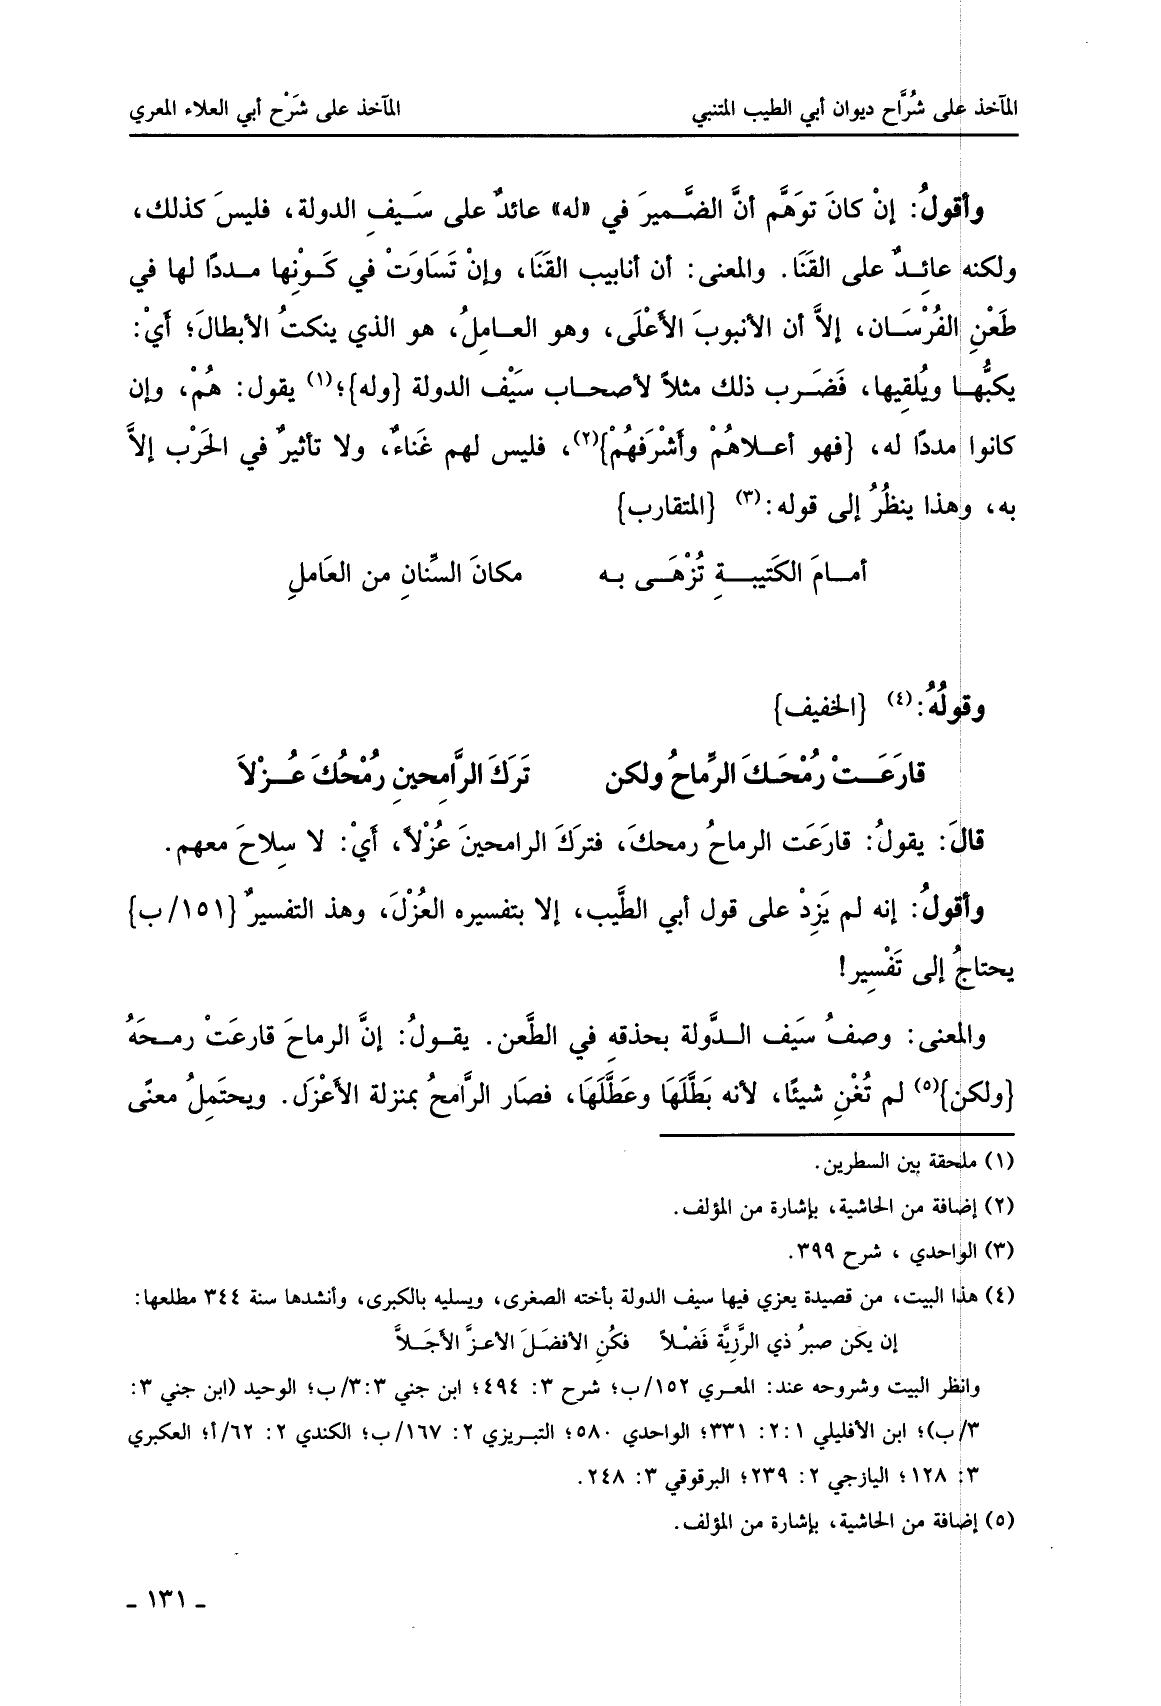 المآخذ على شُرَّاح ديوان أبي الطيب المتنبي المآخذ على شَرْح أبي العلاء المعري
وأقولُ: إنْ كانَ توَهَّم أنَّ الضَّميرَ في «له» عائدٌ على سَيفِ الدولة، فليسَ كذلك،
ولكنه عائِدٌ على القَنَا. والمعنى: أن أنابيب القَنَا، وإنْ تَسَاوَتْ في كَوْنِها مددًا لها في
طَعْنِ الفُرْسَان، إلاَّ أن الأنبوبَ الأَعْلَى، وهو العامِلُ، هو الذي ينكتُ الأبطالَ؛ أَيْ:
يكبُّها ويُلقِيها، فَضَرب ذلك مثلاً لأصحاب سَيْف الدولة {وله}؛(١) يقول: هُمْ، وإن
كانوا مددًا له، {فهو أعلاهُمْ وأشْرَفهُمْ}(٢)، فليس لهم غَناءٌ، ولا تأثيرٌ في الحَرْب إلاَّ
به، وهذا ينظُرُ إلى قوله:(٣) {المتقارب}
أمامَ الكَتيبةِ تُزْهَى به مكانَ السِّنانِ من العَاملِ
وقولُهُ:(٤) {الخفيف}
قارَعَتْ رُمْحَكَ الرِّماحُ ولكن تَرَكَ الرَّامِحينِ رُمْحُكَ عُزْلاَ
قالَ: يقولُ: قارَعَت الرماحُ رمحكَ، فتركَ الرامحينَ عُزْلاً، أَيْ: لا سِلاحَ معهم.
وأقولُ: إنه لم يَزِدْ على قول أبي الطَّيب، إلا بتفسيره العُزْلَ، وهذ التفسيرٌ {١٥١/ب}
يحتاجُ إلى تَفْسِير!
والمعنى: وصفُ سَيَف الدَّولة بحذقهِ في الطَّعن. يقولُ: إنَّ الرماحَ قارعَتْ رمحَهُ
{ولكن}(٥) لم تُغْنِ شيئًا، لأنه بَطَّلَهَا وعَطَّلَهَا، فصَار الرَّامحُ بمنزلة الأَعْزَل. ويحتَمِلُ معنًى
(١) ملحقة بين السطرين.
(٢) إضافة من الحاشية، بإشارة من المؤلف.
(٣) الواحدي ، شرح ٣٩٩.
(٤) هذا البيت، من قصيدة يعزي فيها سيف الدولة بأخته الصغرى، ويسليه بالكبرى، وأنشدها سنة ٣٤٤ مطلعها:
إن يكن صبرُ ذي الرَّزِيَّة فَضْلاً فكُنِ الأفضَلَ الأعزَّ الأجَلاَّ
وانظر البيت وشروحه عند: المعري ١٥٢/ب؛ شرح ٣: ٤٩٤؛ ابن جني ٣:٣/ب؛ الوحيد (ابن جني ٣:
٣/ب)؛ ابن الأفليلي ٢:١: ٣٣١؛ الواحدي ٥٨٠؛ التبريزي ٢: ١٦٧/ب؛ الكندي ٢: ٦٢/أ؛ العكبري
٣: ١٢٨؛ اليازجي ٢: ٢٣٩؛ البرقوقي ٣: ٢٤٨.
(٥) إضافة من الحاشية، بإشارة من المؤلف.
ـ ١٣١ ـ